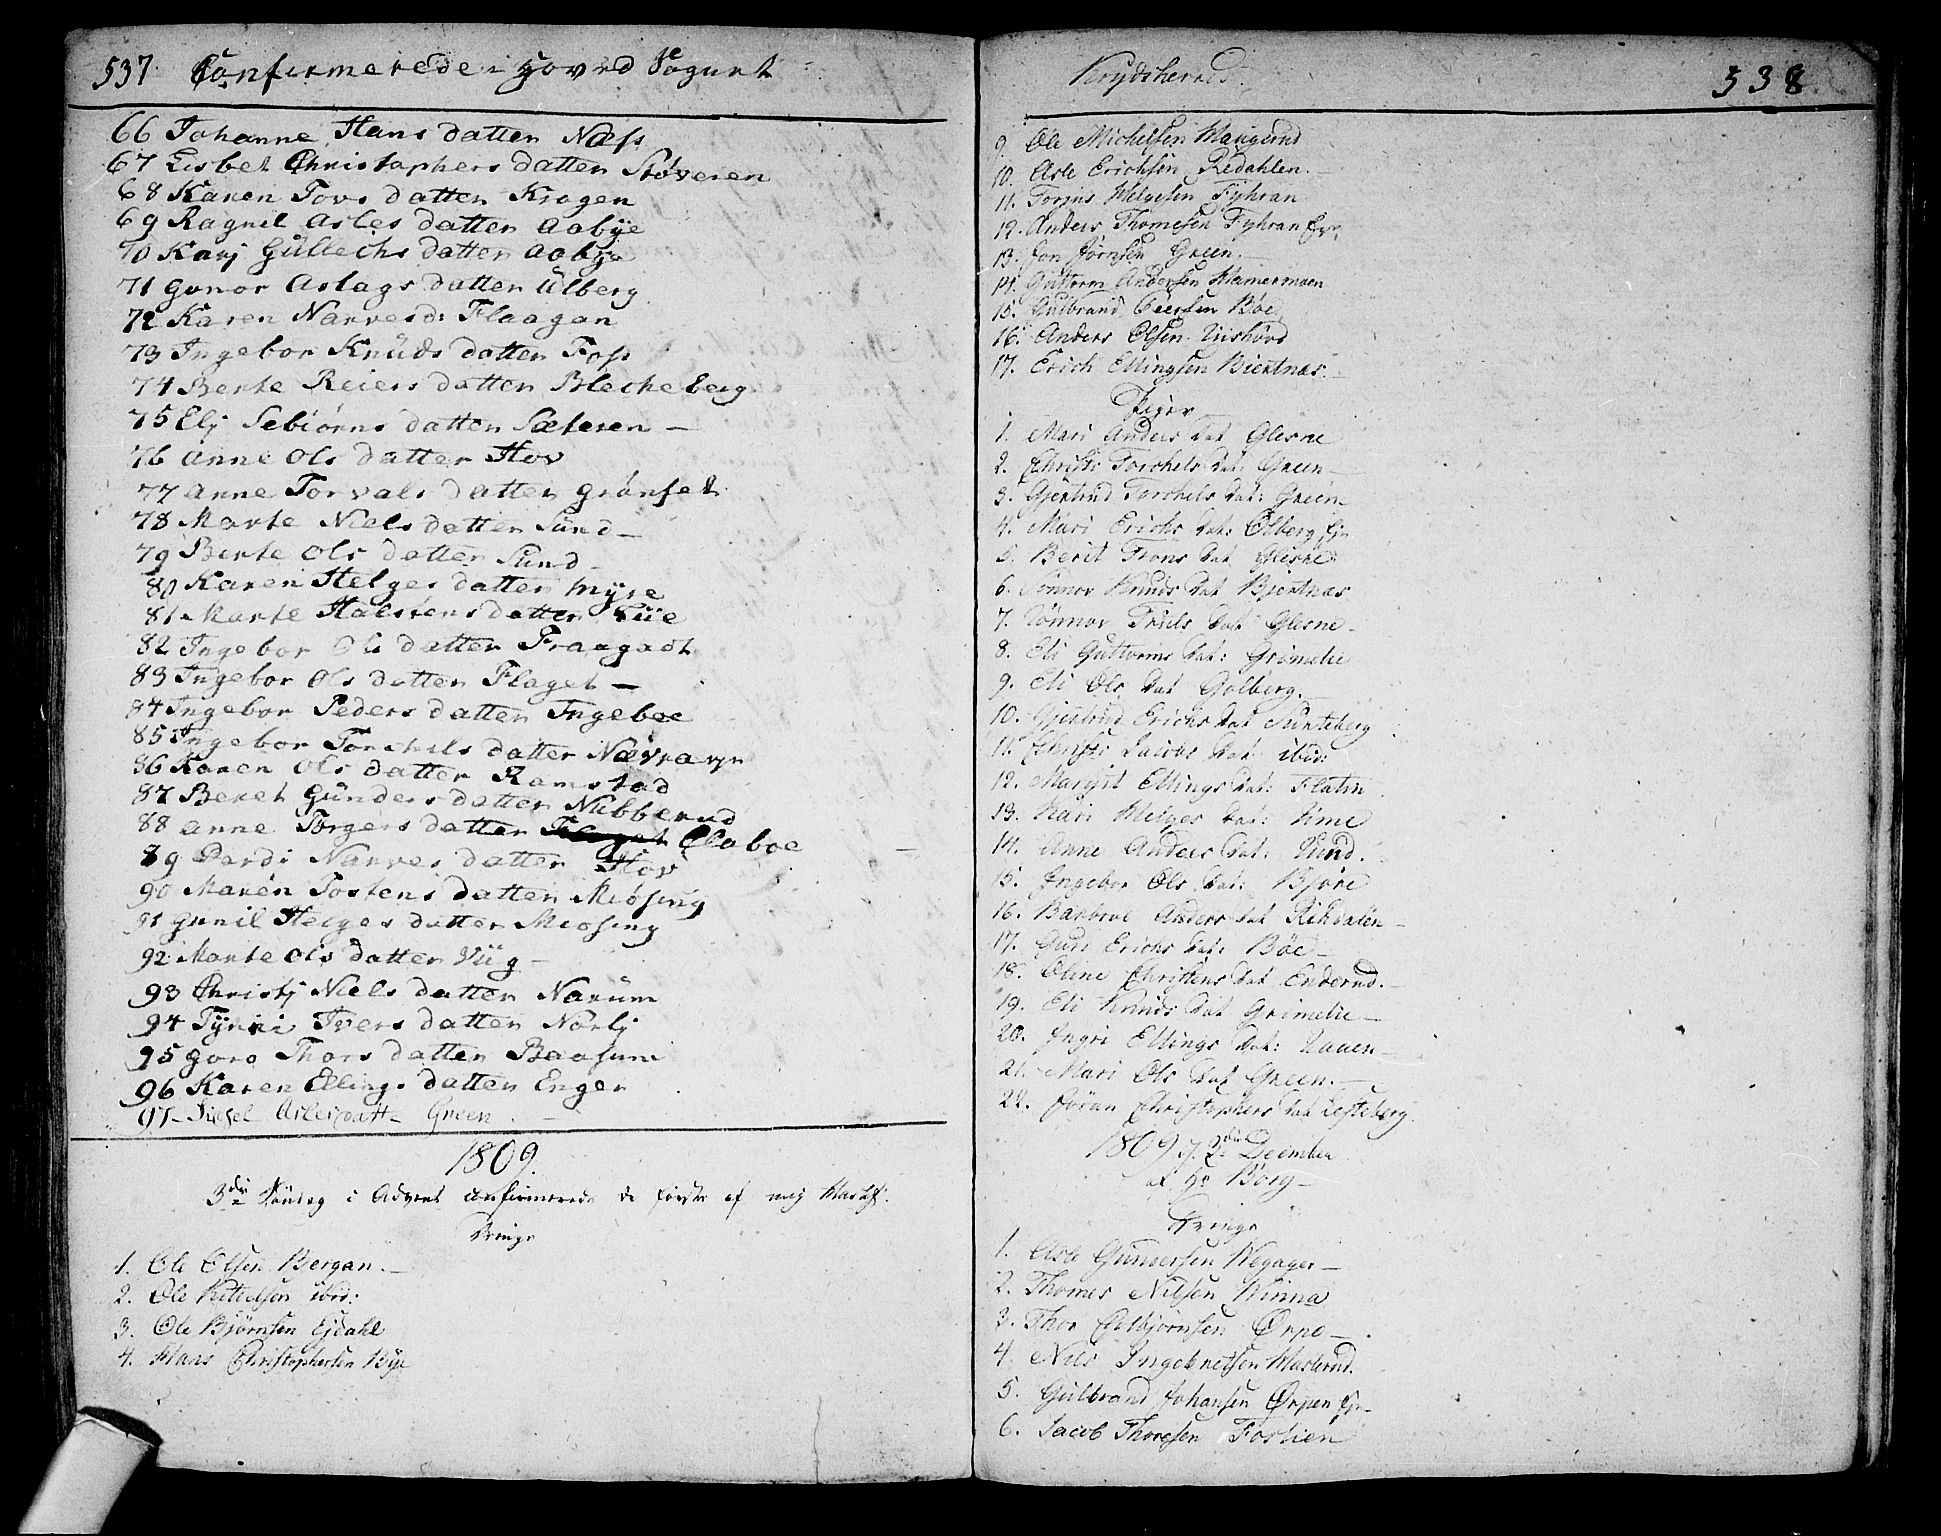 537. Confirmerede i Hoved Sognet
66 Johanne Hans datter Næss
67 Lisbet Christophers datter Støveren
68 Karen Tovs datter Kragen
69 Ragnil Asles datter Aabÿe
70 Karj Gullechs datter Aabÿe
71 Gunor Aslags datter Ulberg
72 Karen Narvesd: Flaagan
73 Ingebor Knuds datter Foss
74 Berte Reiers datter Blecheberg
75 Elj Sebiørns datter Sæteren —
76 Anne Ols datter Hov
77 Anne Torvals datter Grønset
78 Marte Niels datter Sund —
79 Berte Ols datter Sund
80 Karen Helges datter Mÿre
81 Marte Halstens datter
82 Ingebor Ols datter Fraagadt
83 Ingebor Ols datter Flaget —
84 Ingebor Peders datter Ingeboe
85 Ingebor Torchels datter
86 Karen Ols datter Ramstad
87 Beret Gunders datter Nubberud
88 Anne Torgers datter Flaget Claboe
89 Dardi Narves datter Hov
90 Maren Tostens datter Miøsing
91 Gunil Helges datter Miøsing
92 Marte Ols datter Viig —
93 Christj Niels datter Narum
94 Tÿnni Ivers datter Nørlj
95 Goro Thors datter Baasum
96 Karen Ellings datter Enger
97 — Sissel Aslesdatt — Green. —
1809.
3die Søndag i Advent confirmerede de første af mig
Drenge
1. Ole Olsen Bergan. —
2. Ole Kittelsen ibid:
3. Ole Bjørnsen Ejdahl
4. Hans Christophersen Bÿe
Krydsherred. 538
9. Ole Michelsen Haugerud
10. Asle Erichsen Redahlen. —
11. Torjus Helgesen Fÿhran
12. Anders Thomesen Fÿhran
13. Jon Jørnsen Green. —
14. Guttorm Andersen Hamermoen
15. Gulbrand Peersen Bøe
16. Anders Olsen
17. Erich Ellingsen Biertnæs. —
Piger
1. Mari Anders dat Glesne
2. Christi Torchels dat: Green —
3. Gjertrud Torchels dat: Green
4. Mari Erichs dat: Ølberg
5. Berit Trons dat Glesne
6. Tønnor Knuds dat Bjertnæs
7. Tønnor Truls dat Glesne —
8. Eli Guttorms dat: Grimelie
9. Eli Ols dat Golberg. —
10. Gjertrud Erichs dat
11. Christi Jacobs dat ibid:
12. Margit Ellings dat: Flatin
13. Kari Helges dat: Lime
14. Anne Anders dat: Lund.
15. Ingebor Ols dat: Bjøre
16. Barbroe Anders dat Rehdalen —
17. Guri Erichs dat: Bøe —
18. Oline Christens dat Enderud. —
19. Eli Knuds dat Grimelie —
20. Ingri Ellings dat: Lauen —
21. Mari Ols dat Green. —
22. Jøran Christophers dat Lesteberg.
1809 d. 3die December
af Hr Borg —
Drenge
1. Asle Gundersen Wegager —
2. Thomes Nilsen Kinna
3. Thor Gulbjørnsen Ørpe —.
4. Nils Ingebretsen Haslerud.
5. Gulbrand Johansen Ørpen
6. Jacob Thoresen Fostien